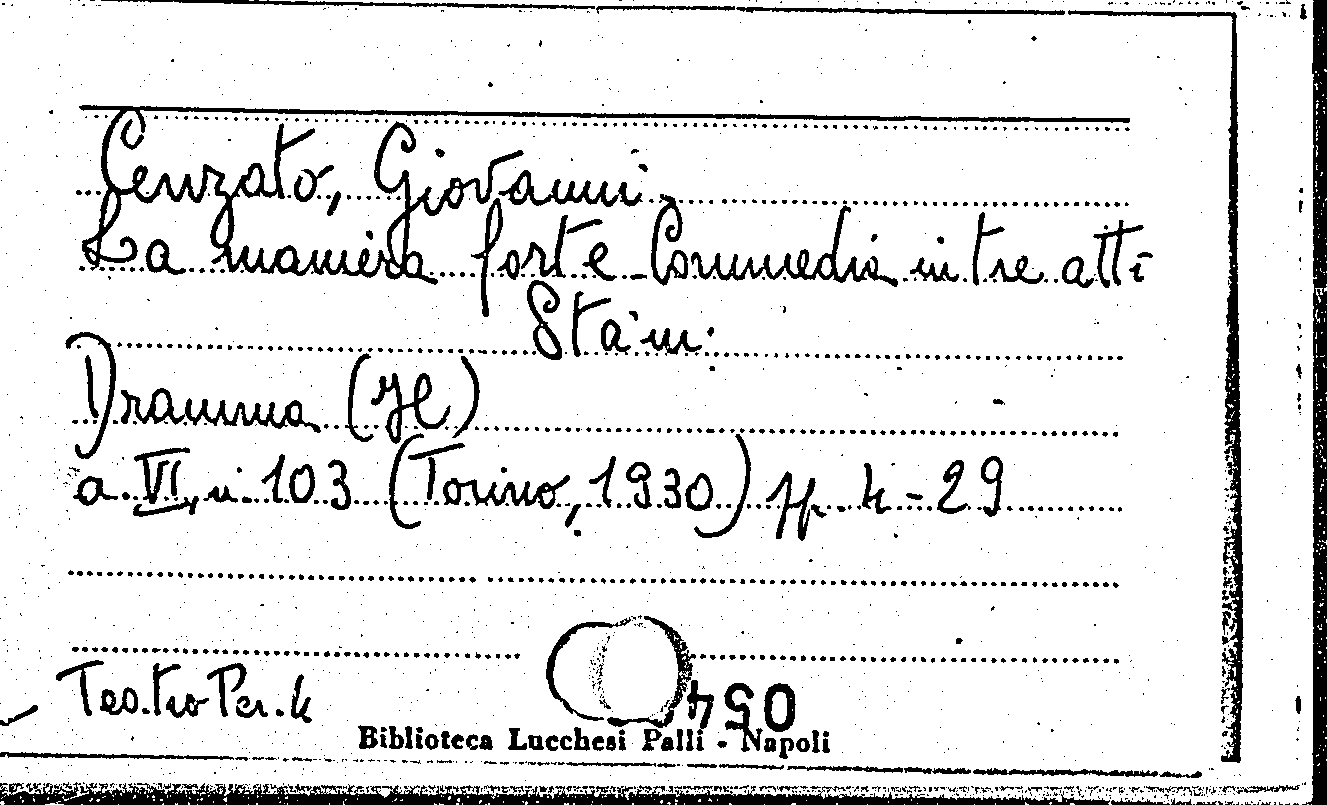 Cenzato, Giovanni
La maniera forte - Commedia in tre atti
Sta in:
Dramma (Il)
a. VI, n. 103 (Torino, 1930) pp. 4-29
Teatro Per. 4
054
Biblioteca Lucchesi Palli - Napoli